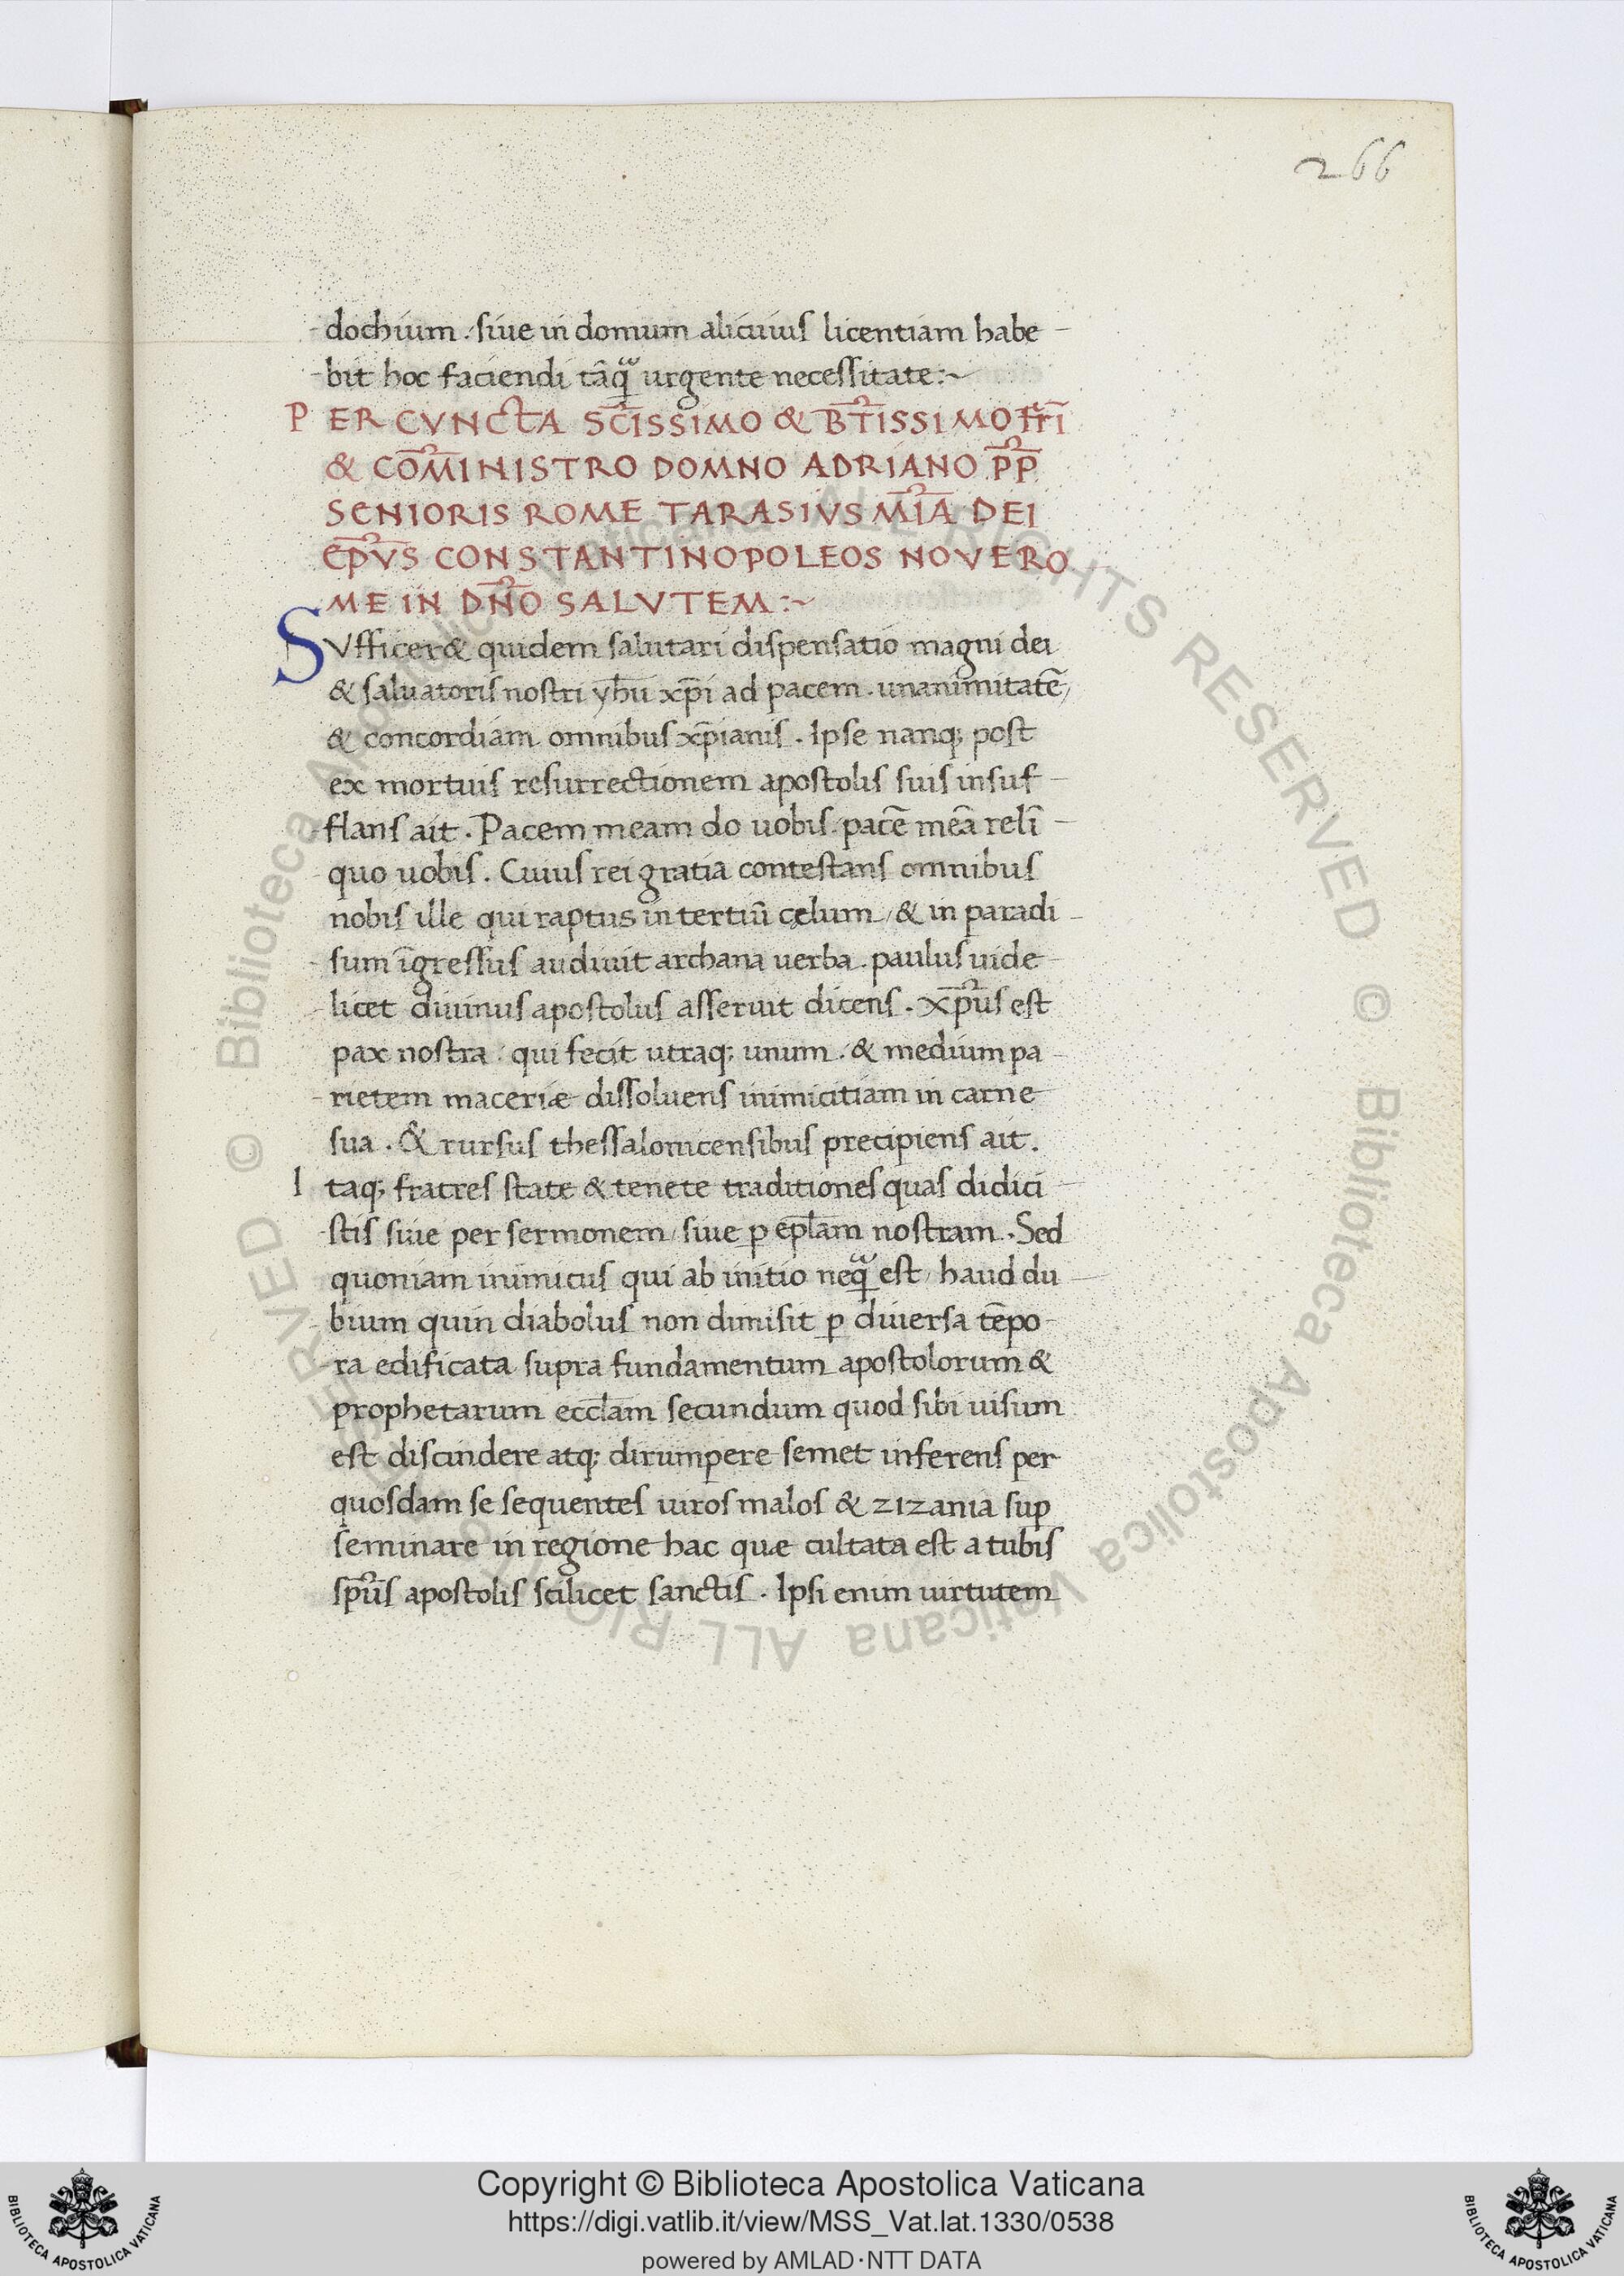 266
dochium. siue in domum alicuius licentiam habe-
bit hoc faciendi tāq̄ urgente necessitate:~
PER CVNCTA SC̄ISSIMO & BT̄ISSIMO FR̄I
& CŌMINISTRO DOMNO ADRIANO P̄P̄
SENIORIS ROME TARASIVS MĪA DEI
EP̄VS CONSTANTINOPOLEOS NOVE RO
ME IN DN̄O SALVTEM:~
SVfficer& quidem salutari dispensatio magni dei
& saluatoris nostri yħu xp̄i ad pacem. unanimitatē/
& concordiam omnibus xp̄ianis. Ipse nanq; post
ex mortuis resurrectionem apostolis suis insuf-
flans ait. Pacem meam do uobis. pacē meā reli-
quo uobis. Cuius rei gratia contestans omnibus
nobis ille qui raptus in tertiū cęlum/ & in paradi-
sum īgressus audiuit archana uerba. paulus uide-
licet diuinus apostolus asseruit dicens. Xp̄us est
pax nostra. qui fecit utraq; unum. & medium pa-
rietem maceriæ dissoluens inimicitiam in carne
sua. & rursus thessalonicensibus precipiens ait.
Itaq; fratres state & tenete traditiones quas didici-
stis siue per sermonem/ siue ꝑ epl̄am nostram. Sed
quoniam inimicus qui ab initio neq̄ est/ haud du-
bium quin diabolus non dimisit ꝑ diuersa tēpo-
ra edificata supra fundamentum apostolorum &
prophetarum eccl̄am secundum quod sibi uisum
est discindere atq; dirumpere semet inferens per
quosdam se sequentes uiros malos & zizania suꝑ
seminare in regione hac quæ cultata est a tubis
sp̄us apostolis scilicet sanctis. Ipsi enim uirtutem
Copyright © Biblioteca Apostolica Vaticana
https://digi.vatlib.it/view/MSS_Vat.lat.1330/0538
powered by AMLAD·NTT DATA
BIBLIOTECA APOSTOLICA VATICANA
BIBLIOTECA APOSTOLICA VATICANA